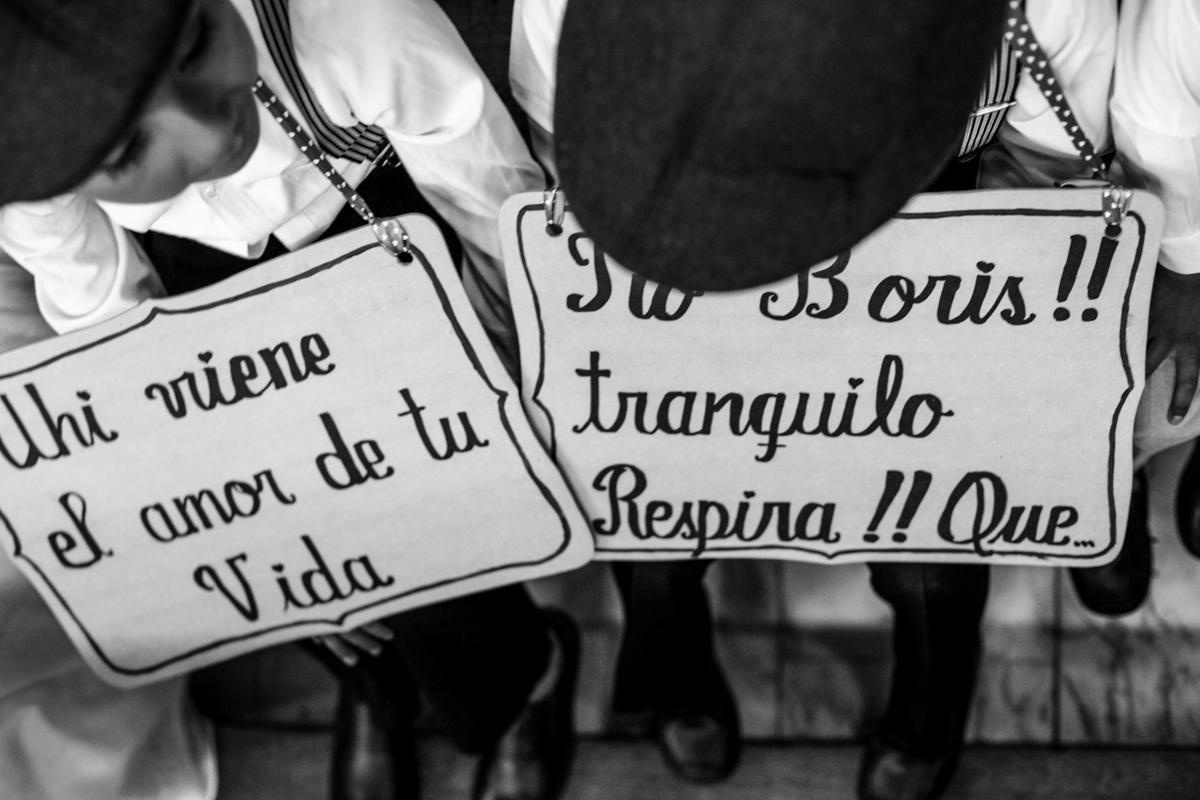 Ahi viene
el amor de tu
Vida
Tio Boris !!
tranquilo
Respira !! Que...